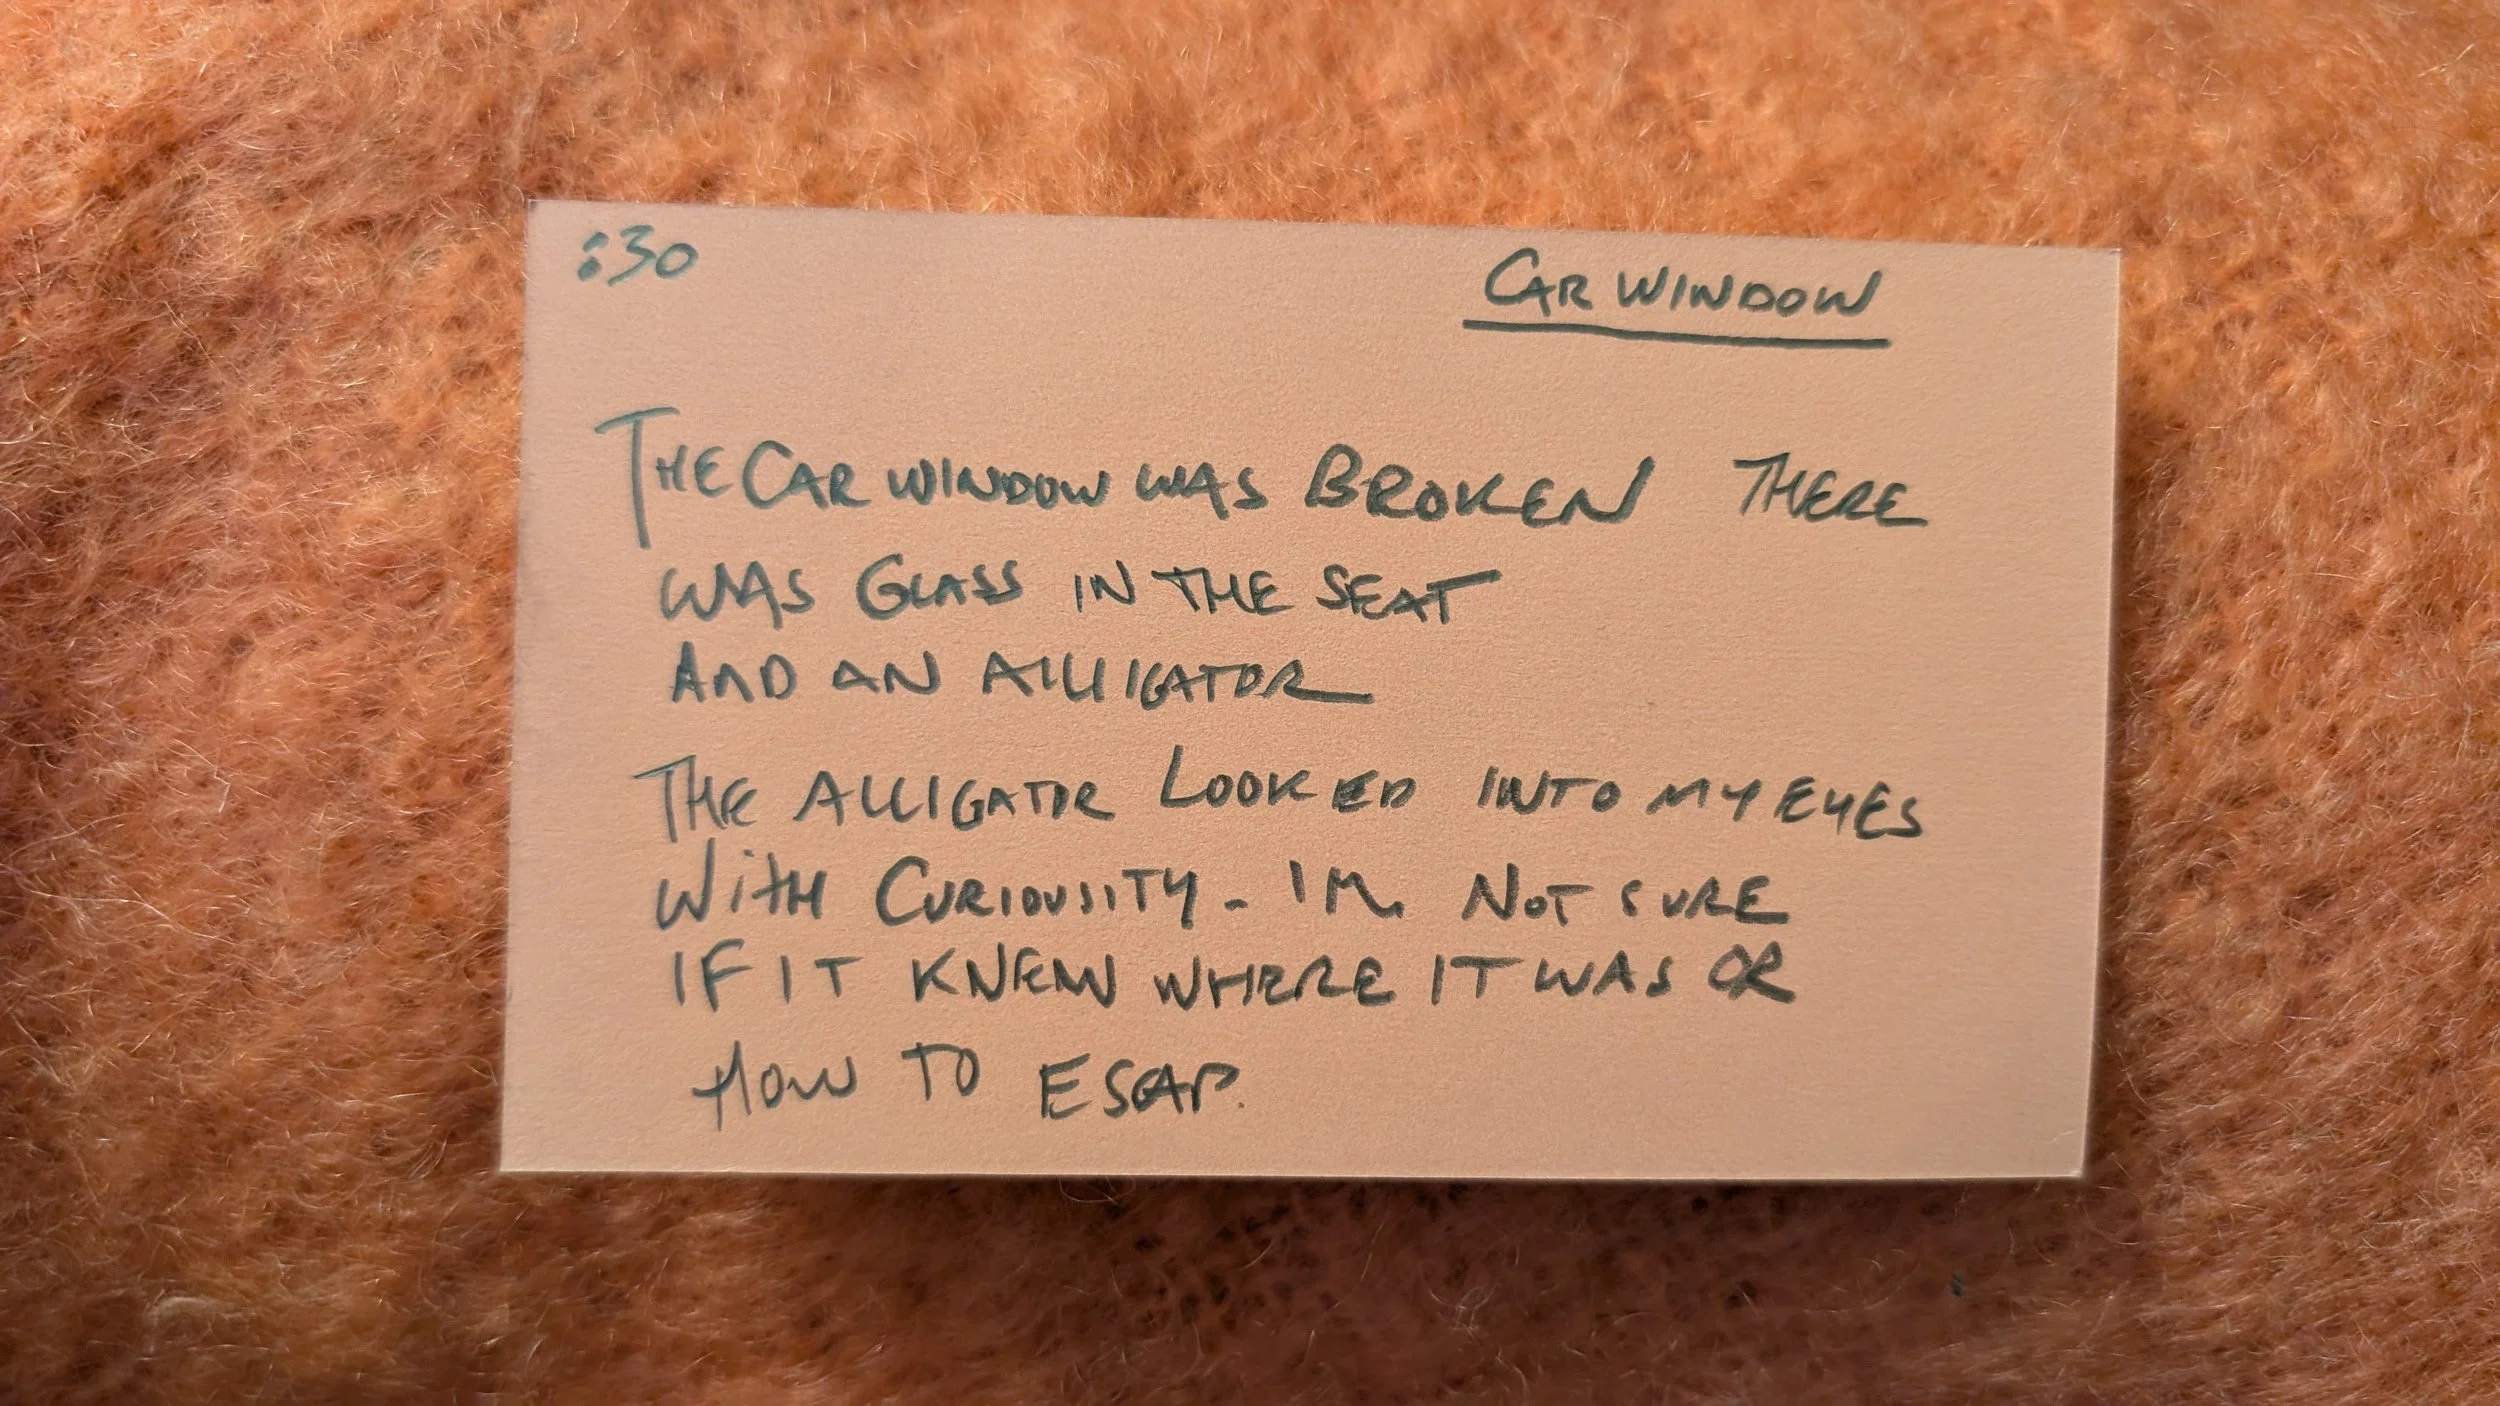 :30
CAR WINDOW
THE CAR WINDOW WAS BROKEN THERE
WAS GLASS IN THE SEAT
AND AN ALLIGATOR
THE ALLIGATOR LOOKED INTO MY EYES
WITH CURIOUSITY - I'M NOT SURE
IF IT KNEW WHERE IT WAS OR
HOW TO ESCAP.